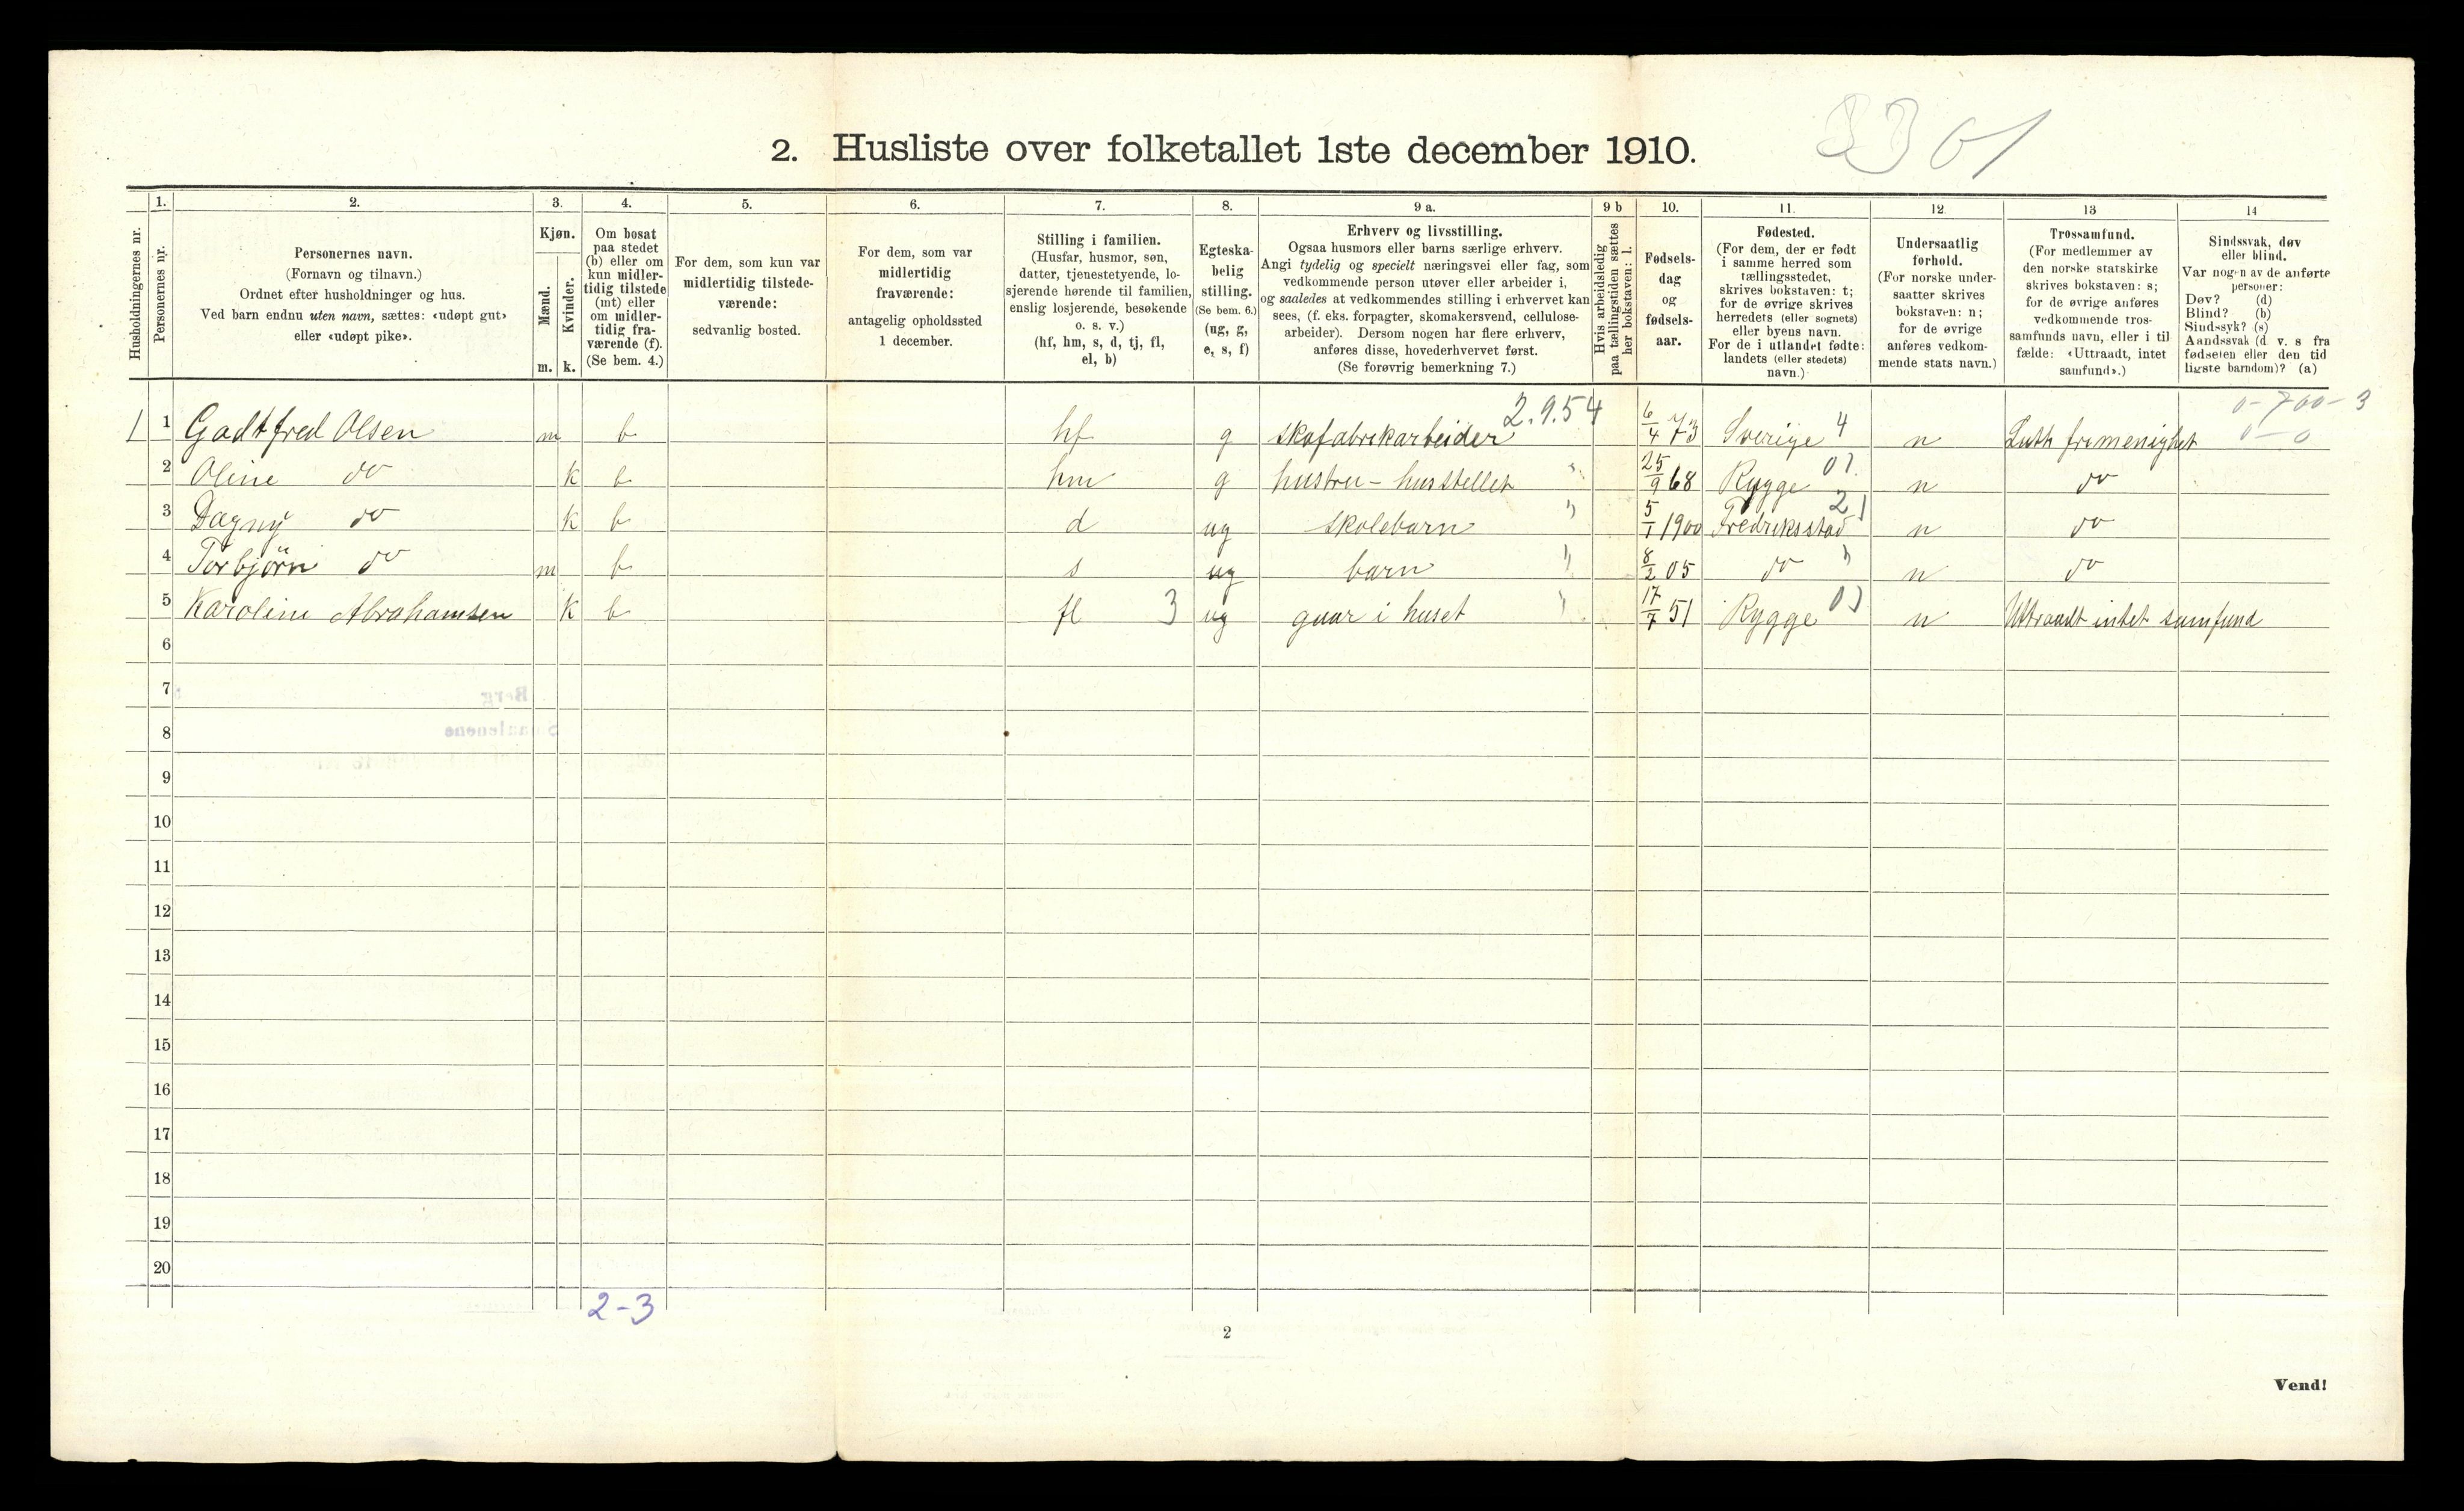 2. Husliste over folketallet 1ste december 1910.
3301
Husholdningernes nr.
1. Personernes nr.
2. Personernes navn. (Fornavn og tilnavn.) Ordnet efter husholdninger og hus. Ved barn endnu uten navn, sættes: «udøpt gut» eller «udøpt pike».
3. Kjøn. Mænd. m. Kvinder. k.
4. Om bosat paa stedet (b) eller om kun midlertidig tilstede (mt) eller om midlertidig fraværende (f). (Se bem. 4.)
5. For dem, som kun var midlertidig tilstedeværende: sedvanlig bosted.
6. For dem, som var midlertidig fraværende: antagelig opholdssted 1 december.
7. Stilling i familien. (Husfar, husmor, søn, datter, tjenestetyende, losjerende hørende til familien, enslig losjerende, besøkende o. s. v.) (hf, hm, s, d, tj, fl, el, b)
8. Egteskabelig stilling. (Se bem. 6.) (ug, g, e, s, f)
9 a. Erhverv og livsstilling. Ogsaa husmors eller barns særlige erhverv. Angi tydelig og specielt næringsvei eller fag, som vedkommende person utøver eller arbeider i, og saaledes at vedkommendes stilling i erhvervet kan sees, (f. eks. forpagter, skomakersvend, cellulosearbeider). Dersom nogen har flere erhverv, anføres disse, hovederhvervet først. (Se forøvrig bemerkning 7.)
9 b Hvis arbeidsledig paa tællingstiden sættes her bokstaven: l.
10. Fødselsdag og fødselsaar.
11. Fødested. (For dem, der er født i samme herred som tællingsstedet, skrives bokstaven: t; for de øvrige skrives herredets (eller sognets) eller byens navn. For de i utlandet fødte: landets (eller stedets) navn.)
12 Undersaatlig forhold. (For norske undersaatter skrives bokstaven: n; for de øvrige anføres vedkommende stats navn.)
13 Trossamfund. (For medlemmer av den norske statskirke skrives bokstaven: s; for de øvrige anføres vedkommende trossamfunds navn, eller i tilfælde: «Uttraadt, intet samfund».)
14 Sindssvak, døv eller blind. Var nogen av de anførte personer: Døv? (d) Blind? (b) Sindssyk? (s) Aandssvak (d. v. s. fra fødselen eller den tidligste barndom)? (a)
2.9.54 0-700-3
1 1 Godtfred Olsen m b hf g skofabrikarbeider 6/4 73 Sverige 4 n Luth frimenighet 0-0
2 Oline do k b hm g hustru - husstellet " 25/9 68 Rygge 01 n do
3 Dagny do k b d ug skolebarn " 5/1 1900 Fredriksstad 21 n do
4 Torbjörn do m b s ug barn " 8/2 05 do " n do
5 Karoline Abrahamsen k b fl 3 ug gaar i huset " 17/7 51 Rygge 01 n Uttraadt intet samfund
6
7
8
9
10
11
12
13
14
15
16
17
18
19
20
2-3
2
Vend!